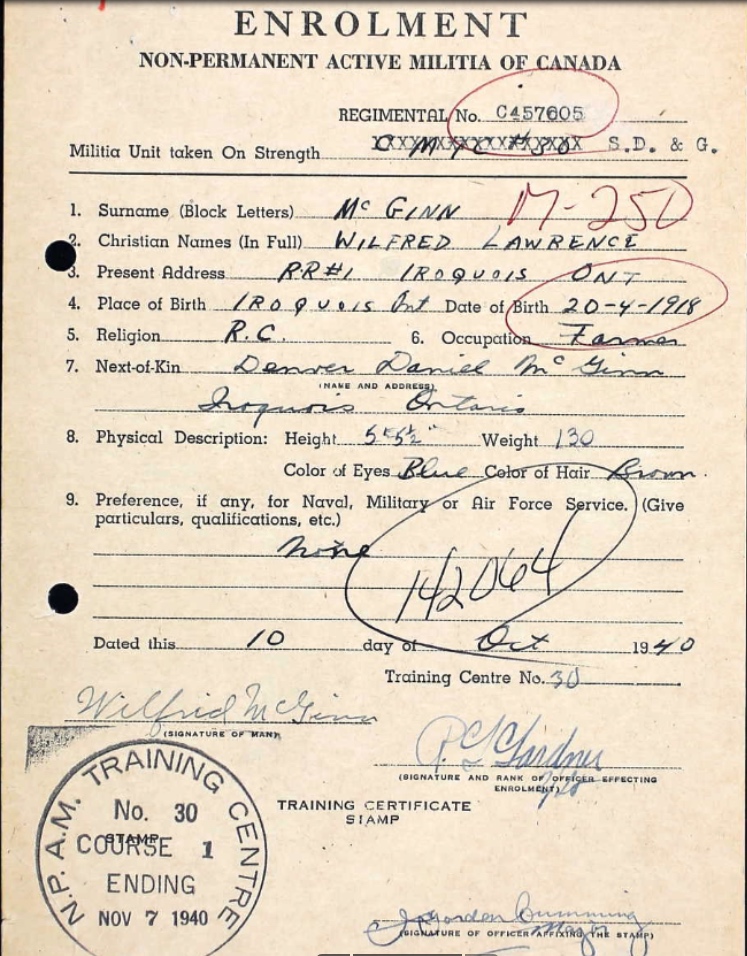 ENROLMENT
NON-PERMANENT ACTIVE MILITIA OF CANADA
REGIMENTAL No. C457605
Militia Unit taken On Strength S.D. & G.
1. Surname (Block Letters) Mc GINN M-250
2. Christian Names (In Full) WILFRED LAWRENCE
3. Present Address RR#1 IROQUOIS ONT
4. Place of Birth IROQUOIS Ont Date of Birth 20-4-1918
5. Religion R.C. 6. Occupation Farmer
7. Next-of-Kin Denver Daniel McGinn
(NAME AND ADDRESS)
Iroquois Ontario
8. Physical Description: Height 5' 5½" Weight 130
Color of Eyes Blue Color of Hair Brown.
9. Preference, if any, for Naval, Military or Air Force Service. (Give
particulars, qualifications, etc.)
None
142064
Dated this 10 day of Oct 1940
Training Centre No. 30
Wilfrid McGinn
(SIGNATURE OF MAN)
Gardner
(SIGNATURE AND RANK OF OFFICER EFFECTING
ENROLMENT)
TRAINING CERTIFICATE
STAMP
N.P.A.M. TRAINING CENTRE
No. 30
STAMP
COURSE 1
ENDING
NOV 7 1940
Gordon Cumming
Major
(SIGNATURE OF OFFICER AFFIXING THE STAMP)